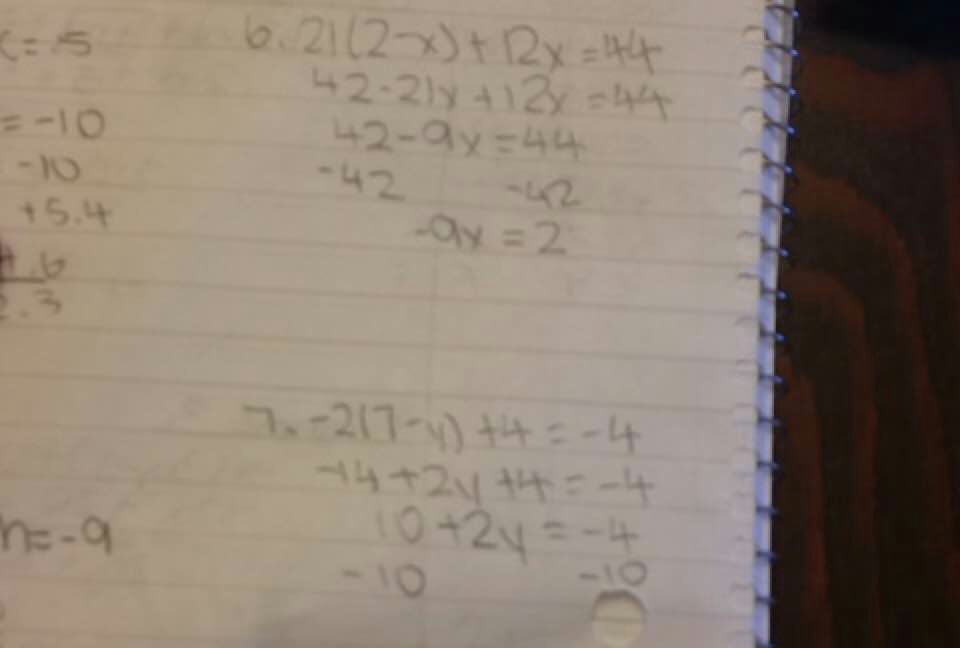 x=.5
=-10
-10
+5.4
4.6
2.3
n=-9
6. 21(2-x)+12x=44
42-21x+12x=44
42-9x=44
-42 -42
-9x=2
7. -2(7-y)+4=-4
-14+2y+4=-4
10+2y=-4
-10 -10